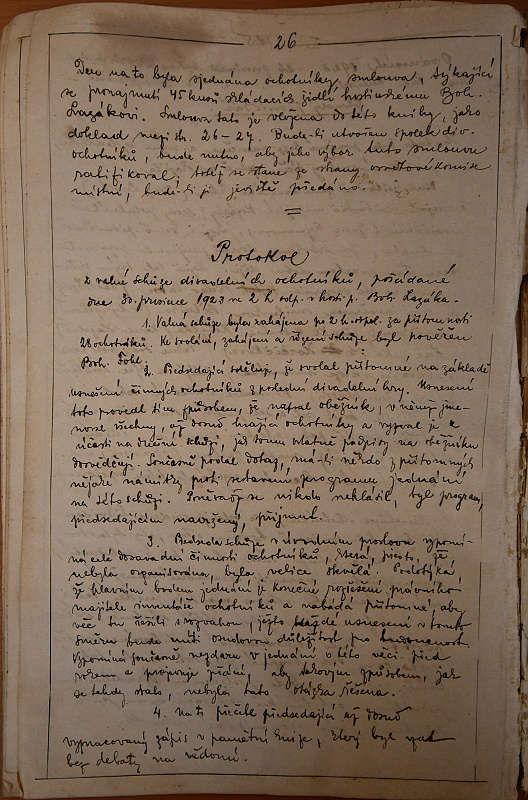 26
Dne na to byla sjednána ochotníky smlouva, týkající
se pronajmutí 45 kusů skládacích židlí hostinskému Boh.
Lazákovi. Smlouva tato je vložena do této knihy, jako
doklad mezi str. 26–27. Bude-li utvořen spolek div.
ochotníků, bude nutno, aby jeho výbor tuto smlouvu
ratifikoval; totéž se stane ze strany osvětové komise
místní, bude-li jí jeviště předáno.
Protokol
z valné schůze divadelních ochotníků, pořádané
dne 30. prosince 1923 ve 2 h odp. v host. p. Boh. Lazáka.
1. Valná schůze byla zahájena po 2 h. odpol. za přítomnosti
28 ochotníků. Ke svolání, zahájení a řízení schůze byl pověřen
Boh.
2. Předsedající sděluje, že svolal přítomné na základě
usnesení činných ochotníků z poslední divadelní hry. Usnesení
toto provedl tím způsobem, že napsal oběžník, v němž jme-
noval všechny, až dosud hrající ochotníky a vyzval je k
účasti na dnešní schůzi, jak tomu vlastně podpisy na oběžníku
dosvědčují. Současně podal dotaz, má-li někdo z přítomných
nějaké námitky proti sestavení programu jednání
na této schůzi. Poněvadž se nikdo nehlásil, byl program,
předsedajícím navržený, přijmut.
3. Předseda schůze v úvodním proslovu vzpomí-
ná celé dosavadní činnosti ochotníků, která, přesto, že
nebyla organisována, byla velice skvělá. Podotýká,
že hlavním bodem jednání je konečné rozřešení právního
majitele inventáře ochotníků a nabádá přítomné, aby
věc tu řešili s rozvahou, ježto každé usnesení v tomto
směru bude míti osudovou důležitost pro budoucnost.
Vzpomíná současně nezdaru v jednání o této věci před
rokem a projevuje přání, aby takovým způsobem, jak
se tehdy stalo, nebyla tato otázka řešena.
4. Na to přečte předsedající až dosud
vypracovaný zápis v pamětní knize, který byl vzat
bez debaty na vědomí.